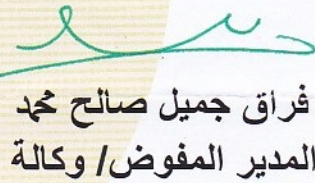 فراق جميل صالح محمد
المدير المفوض/ وكالة